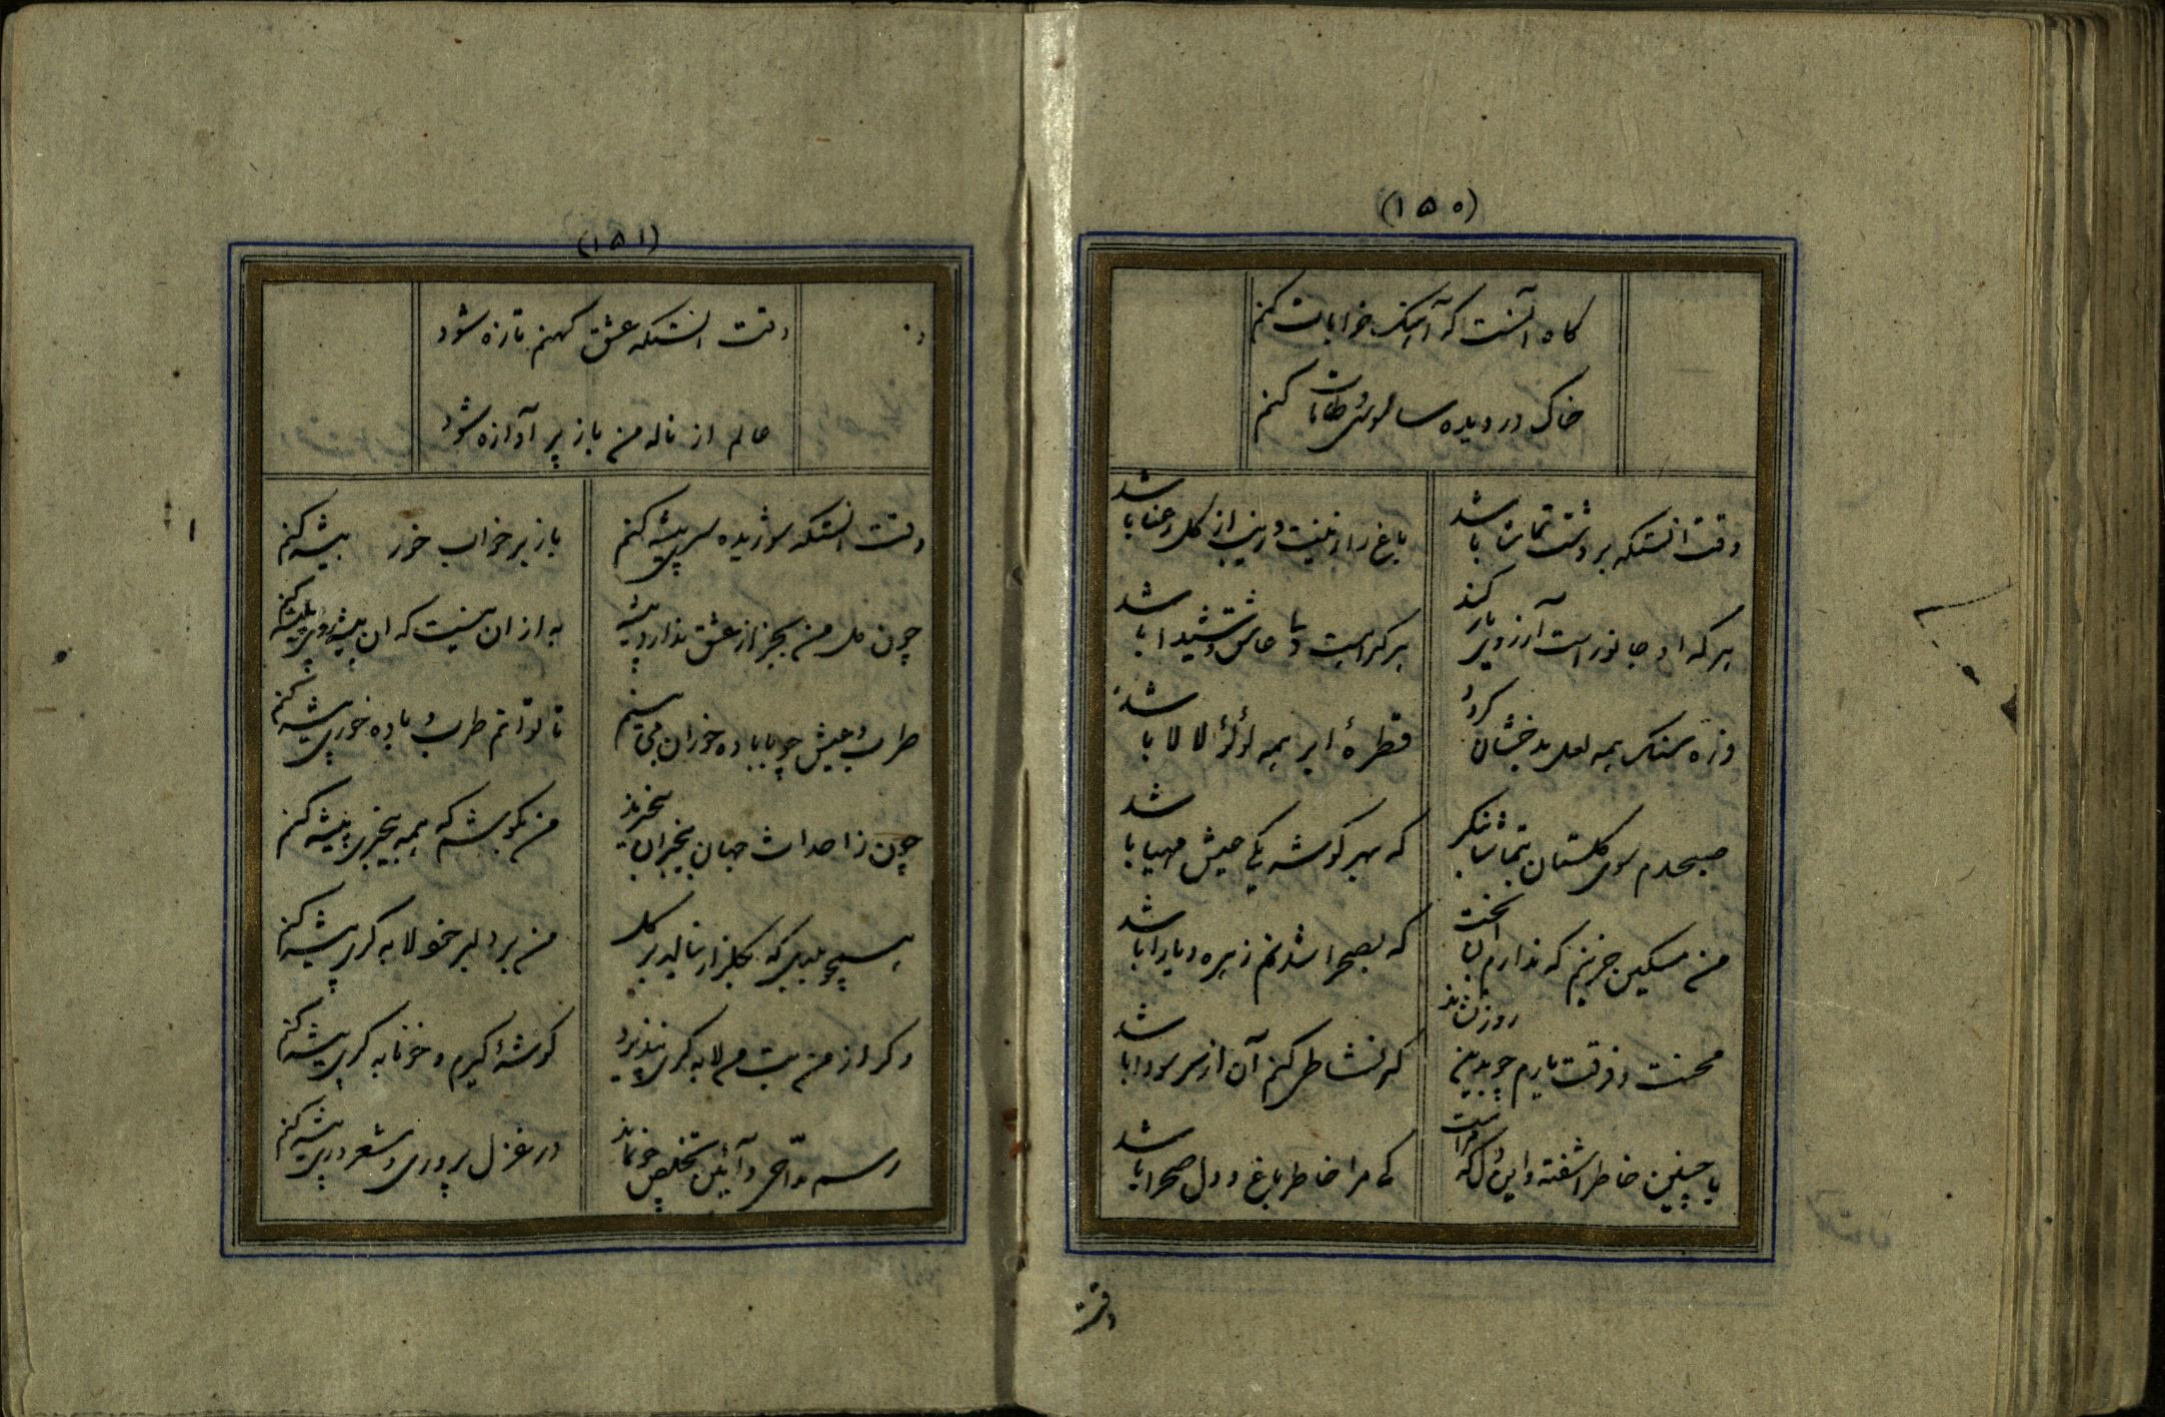 (۱۵۰)
کاه آنست که آهنک خرابات کنم
خاک در دیده سالوس و طامات کنم
وقت انستکه بر دشت تماشا باشد
باغ را زینت و زیب از کل رعنا باشد
هر که او جانور است آرزوی یار کند
هر کرا هست دل عاشق و شیدا باشد
ذره سنک همه لعل بدخشان کردد
قطرهٔ ابر همه لؤلؤ لالا باشد
صبحدم سوی کلستان بتماشا بنکر
که بهر کوشه یکی عیش مهیا باشد
من مسکین حزینم که ندارم آن بخت
که بصحرا شدنم زهره و یارا باشد
محنت و فرقت یارم چو بدین روز نشاند
که نشاط کنم آن از سر سودا باشد
با چنین خاطر آشفته و این دل که مراست
کی مرا خاطر باغ و دل صحرا باشد
وقت
(۱۵۱)
وقت انستکه عشق کهنم تازه شود
عالم از ناله من باز پر آوازه شود
وقت انستکه شوریده سری پیشه کنم
باز بر خواب خور بیشه کنم
چون دل من بجز از عشق ندارد پیشه
به از ان نیست که ان پیشه
طرب و عیش چو با باده خوران می بینم
تا توانم طرب و باده خوری پیشه کنم
چون ز احداث جهان بیخبران بیخبرند
من بکوشم که همه بیخبری پیشه کنم
همچو بلبل که بکلزار بنالد بر کل
من بر دلبر خود لابه کری پیشه کنم
وکر از من بت من لابه کری نپذیرد
کوشهٔ کیرم و خونابه کری پیشه کنم
رسم مداحی و آئین تخلص چو نماند
در غزل پروری و شعر دری پیشه کنم